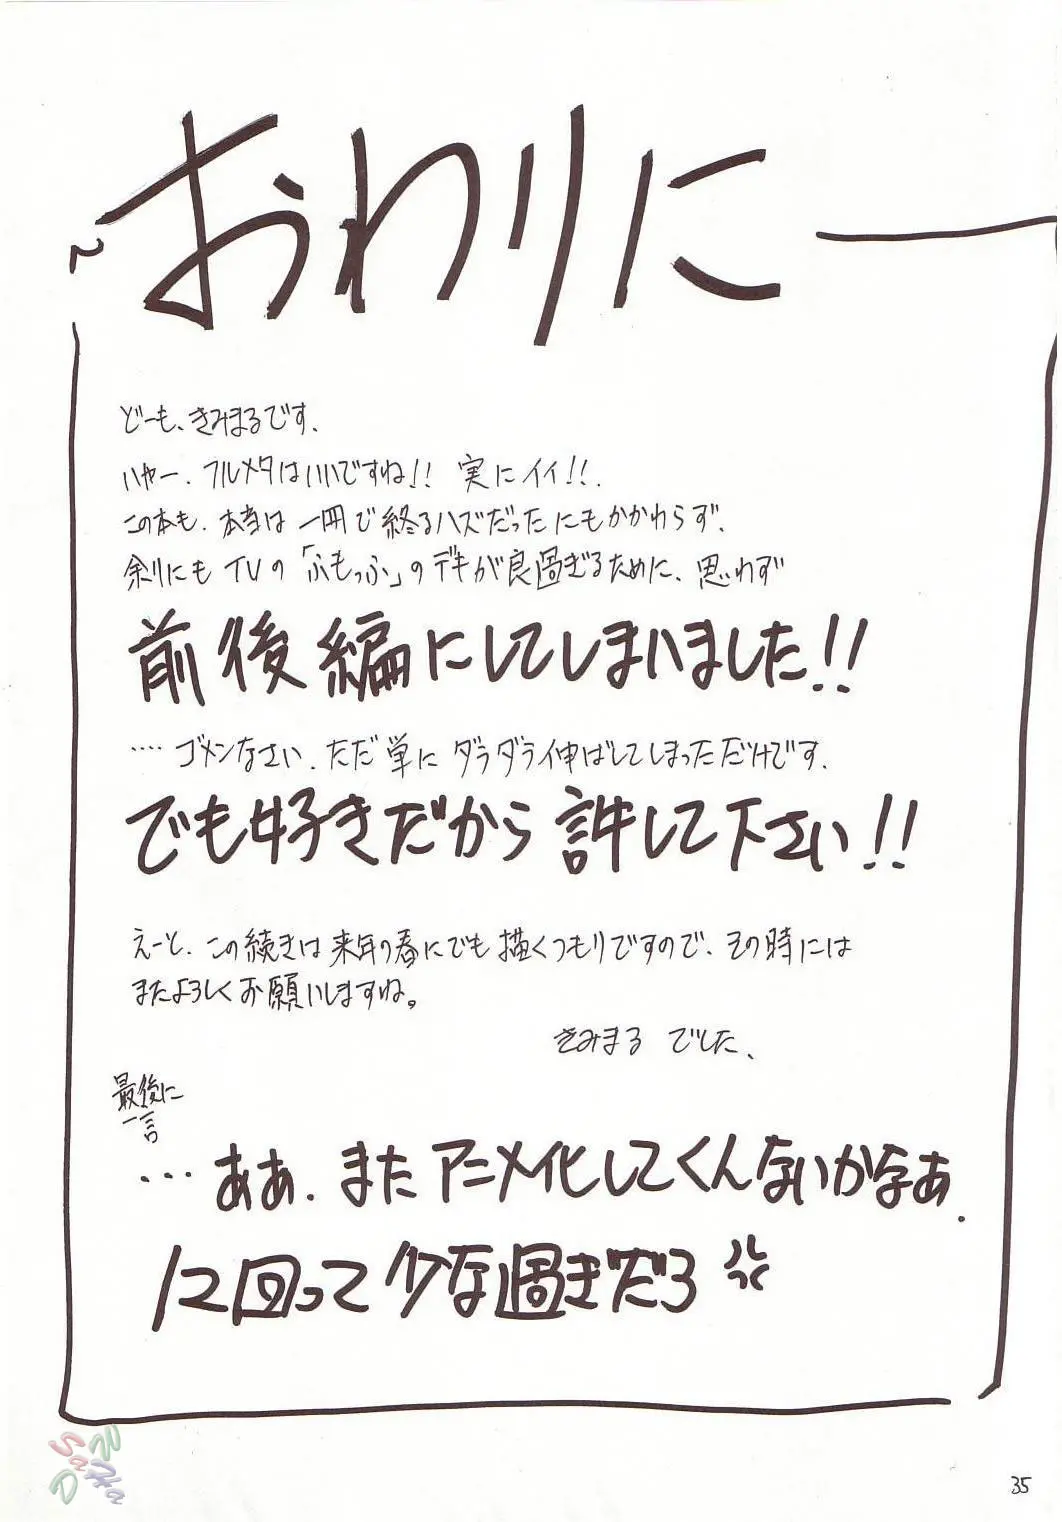 おわりに
どーも、きみまるです、
ハヤー、フルメタはいいですね!! 実にイイ!!、
この本も、本当は一冊で終るハズだったにもかかわらず、
余りにもTVの「ふもっふ」のデキが良過ぎるために、思わず
前後編にしてしまいました!!
‥‥ゴメンなさい、ただ単にダラダラ伸ばしてしまっただけです、
でも好きだから許して下さい!!
えーと、この続きは来年の春にでも描くつもりですので、その時には
またよろしくお願いしますね。
きみまる でした、
最後に
一言
…ああ、またアニメ化してくんないかなぁ、
12回って少な過ぎだろ
35